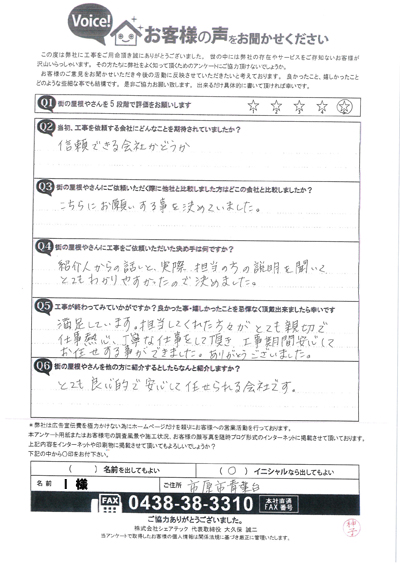 Voice! お客様の声をお聞かせください
この度は弊社に工事をご用命頂き誠にありがとうございました。 世の中には弊社の存在やサービスをご存知ないお客様が
沢山いらっしゃいます。 その方たちに弊社をよく知って頂くためのアンケートにご協力頂けないでしょうか。
お客様のご意見をお聞かせいただき今後の活動に反映させていただきたいと考えております。 良かったこと、嬉しかったこと
どのような些細な事でも結構です。 是非ご協力お願い致します。 出来るだけ具体的に書いて頂ければ幸いです。
Q1 街の屋根やさんを5段階で評価をお願いします ☆ ☆ ☆ ☆ ☆
Q2 当初、工事を依頼する会社にどんなことを期待されていましたか?
信頼できる会社かどうか
Q3 街の屋根やさんにご依頼いただく際に他社と比較しました方はどこの会社と比較しましたか?
こちらにお願いする事を決めていました。
Q4 街の屋根やさんに工事をご依頼いただいた決め手は何ですか?
紹介人からの話しと、実際、担当の方の説明を聞いて
とてもわかりやすかったので決めました。
Q5 工事が終わってみていかがですか?良かった事・嬉しかったことを忌憚なく頂戴出来ましたら幸いです
満足しています。担当してくれた方々がとても親切で
仕事熱心、丁寧な仕事をして頂き、工事期間安心して
お任せする事ができました。ありがとうございました。
Q6 街の屋根やさんを他の方に紹介するとしたらなんと紹介しますか?
とても良心的で安心して任せられる会社です。
*弊社は広告宣伝費を極力かけない為にホームページだけを頼りにお客様への営業活動を行っております。
本アンケート用紙またはお客様宅の調査風景や施工状況、お客様の顔写真を随時ブログ形式のインターネットに掲載させて頂いております。
上記内容をインターネットや印刷物に掲載させて頂いてもよろしいでしょうか?
下記の中から○印をお付け下さい。
( ) 名前を出してもよい ( ○ ) イニシャルなら出してもよい
名前 I 様 ご住所 市原市青葉台
FAX 0438-38-3310 本社直通 FAX番号
ご協力ありがとうございました。
株式会社シェアテック 代表取締役 大久保 誠二
当アンケートで取得したお客様の個人情報は関係法規に基づき厳正に管理いたします。